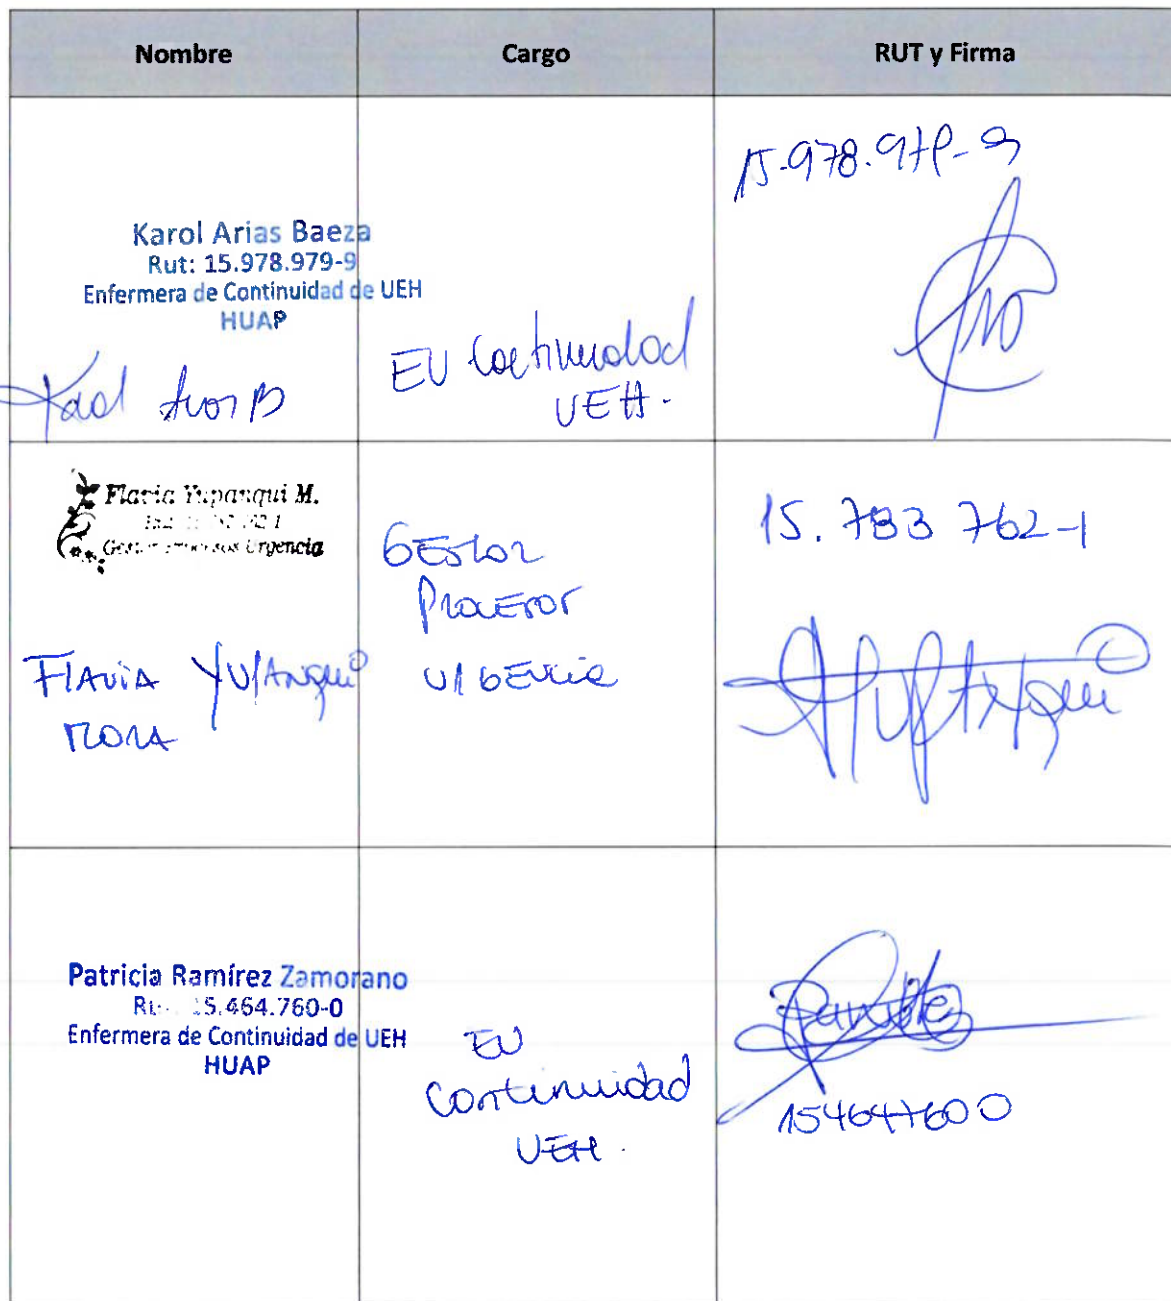 Nombre
Cargo
RUT y Firma
Karol Arias Baeza
Rut: 15.978.979-9
Enfermera de Continuidad de UEH
HUAP
Karol Arias B
EU Continuidad
UEH.
15.978.979-9
Flavia Yupanqui M.
Gestor Procesos Urgencia
FLAViA YUPAnqui
MORA
GESTOR
PROCESOS
URGENCIA
15.783 762-1
Yupanqui
Patricia Ramírez Zamorano
15.464.760-0
Enfermera de Continuidad de UEH
HUAP
EU
Continuidad
UEH.
154647600